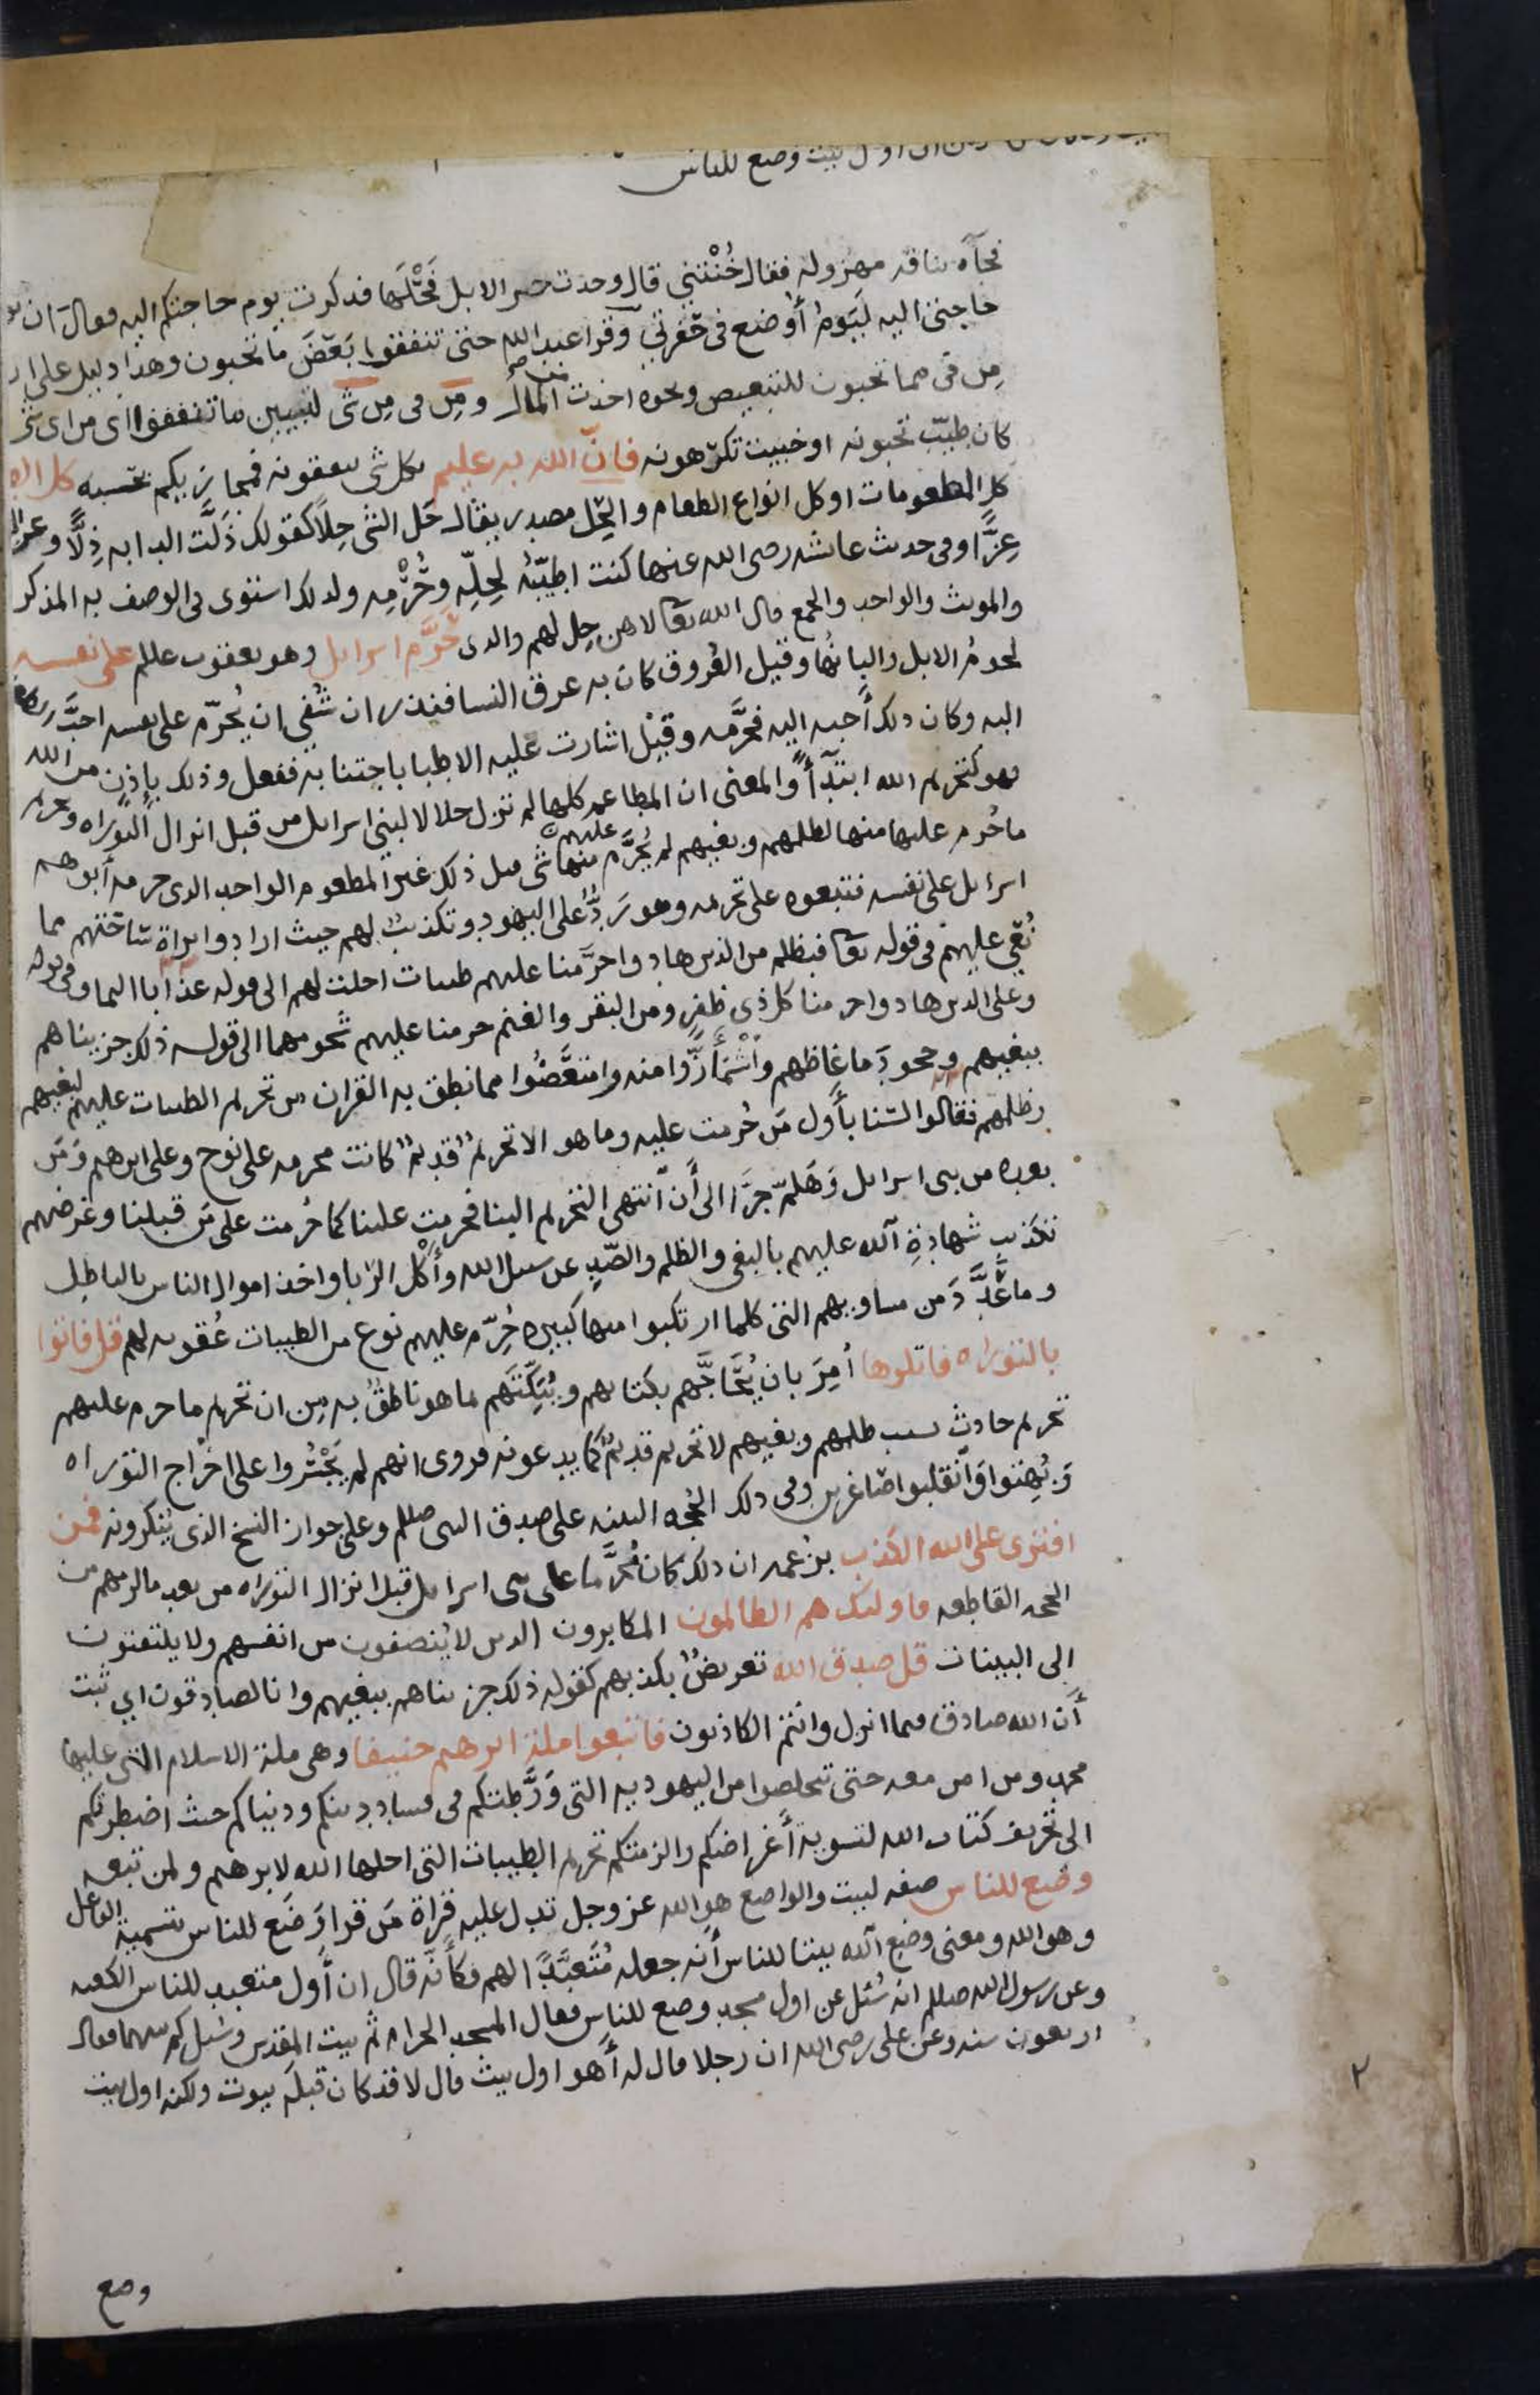 اول بيت وضع للناس
فجآه بناقه مهزوله فقال خُنْتَني قال وجدت خير الابل فَحْلَها فذكرت يوم حاجتكم اليه فعال ان يوم
حاجتي اليه لَيَومُ أُوضع في حُفرتي وقرا عبد الله حتى تنفقوا بَعْضَ ما تحبون وهذا دليل على ان
مِن في مما تحبون للتبعيض ونحوه اخذت من المال ومِن في مِن شي لتبيين ما تنفقوا اي من اي شي
كان طيّب تحبونه او خبيث تكرهونه فانّ الله به عليم بكل شي تنفقونه فمجازيكم بحسبه كل الطعام
كل المطعومات او كل انواع الطعام والحِل مصدر يقال حَل الشي حِلاً كقولك ذَلَّت الدابه ذِلاًّ وعز الرجل
عِزًّا وفي حديث عائشه رضي الله عنها كنت اطيّبُه لحِلّه وحُرْمِه ولذلك استوى في الوصف به المذكر
والمونث والواحد والجمع قال الله تعا لا هن حِل لهم والذي حَرَّم اسرائيل وهو يعقوب عللم على نفسه
لحومُ الابل والبانُها وقيل العُروق كان به عرق النسا فنذر ان شُفي ان يُحرّم على نفسه احبَّ الطعام
اليه وكان ذلك أَحبه اليه فحرَّمه وقيل اشارت عليه الاطبا باجتنابه ففعل وذلك باذن من الله
فهو كتحريم الله ابتدآءً والمعنى ان المطاعم كلها لم تزل حلالا لبني اسرايل من قبل انزال التوراه وتحريم
ما حُرم عليها منها لظلمهم وبغيهم لم يُحرَّم عليهم منها شي قبل ذلك غير المطعوم الواحد الذي حرمه أبوهم
اسرايل على نفسه فتبعوه على تحريمه وهو رَدٌّ على اليهود وتكذيبٌ لهم حيث ارادوا براة ساحتهم مما
نُعِي عليهم في قوله تعا فبظلم من الذين هادوا حرَّمنا عليهم طيبات احلت لهم الى قوله عذابا اليما وفي قوله
وعلى الذين هادوا حرمنا كل ذي ظفرٍ ومن البقر والغنم حرمنا عليهم شحومهما الى قوله ذلك جزيناهم
ببغيهم وجحودَ ما غاظهم واشْمَأَزُّوا منه وامتعَضُوا مما نطق به القران من تحريم الطيبات عليهم لبغيهم
وظلمهم فقالوا لسنا بأَول مَن حُرمت عليه وما هو الا تحريمٌ قديمٌ كانت محرمه على نوح وعلى ابرهيم ومَن
بعده من بني اسرايل وَهَلمّ جرّا الى أَن انتهى التحريم الينا فحرمت علينا كما حُرمت على مَن قبلنا وغرضهم
تكذيب شهادةِ الله عليهم بالبغي والظلم والصّدِ عن سبيل الله وأَكْل الربا واخذ اموال الناس بالباطل
وما عُدِّدَ من مساويهم التي كلما ارتكبوا منها كبيره حُرِّم عليهم نوع من الطيبات عُقوبه لهم قل فاتوا
بالتوراه فاتلوها أُمِرَ بان يُحَاجَّهم بكتابهم ويُبَكِّتَهم بما هو ناطقٌ به مِن ان تحريم ما حرم عليهم
تحريم حادث بسبب ظلمهم وبغيهم لا تحريم قديمٌ كما يدعونه فروي انهم لم يَجْسُروا على اخراج التوراه
وَبُهِتوا وانقلبوا صاغرين وفي ذلك الحُجه البينه على صدق النبي صللم وعلى جواز النسخ الذي يُنكرونه فمن
افترى على الله الكذب بزعمه ان ذلك كان مُحرَّما على بني اسرايل قبل انزال التوراه من بعد ما لزمهم من
الحجه القاطعه فاولئك هم الظالمون المكابرون الذين لا يُنصفون من انفسهم ولا يلتفتون
الى البينات قل صدق الله تعريضٌ بكذبهم كقوله ذلك جزيناهم ببغيهم وانا لصادقون اي ثبت
أَن الله صادق فيما انزل وانتم الكاذبون فاتبعوا ملة ابرهيم حنيفا وهي ملة الاسلام التي عليها
محمد ومن امن معه حتى تتخلصوا من اليهوديه التي وَرَّطتكم في فساد دينكم ودنياكم حيث اضطرتكم
الى تحريف كتاب الله لتسوية أَغراضكم والزمتكم تحريم الطيبات التي احلها الله لابرهيم ولمن تبعه
وضع للناس صفه لبيت والواضع هو الله عز وجل تدل عليه قراة مَن قرا وَضَع للناس بتسمية الفاعل
وهو الله ومعنى وضع الله بيتا للناس أَنه جعله مُتَعبَّدًا لهم فكأَنَّه قال ان أَول متعبد للناس الكعبه
وعن رسول الله صللم انه سُئل عن اول مسجد وضع للناس فقال المسجد الحرام ثم بيت المقدس وسُئل كم بينهما فقال
اربعون سنه وعن علي رضي الله ان رجلا قال له أَهو اول بيت قال لا قد كان قبلَه بيوت ولكنه اول بيت
وضع
٢